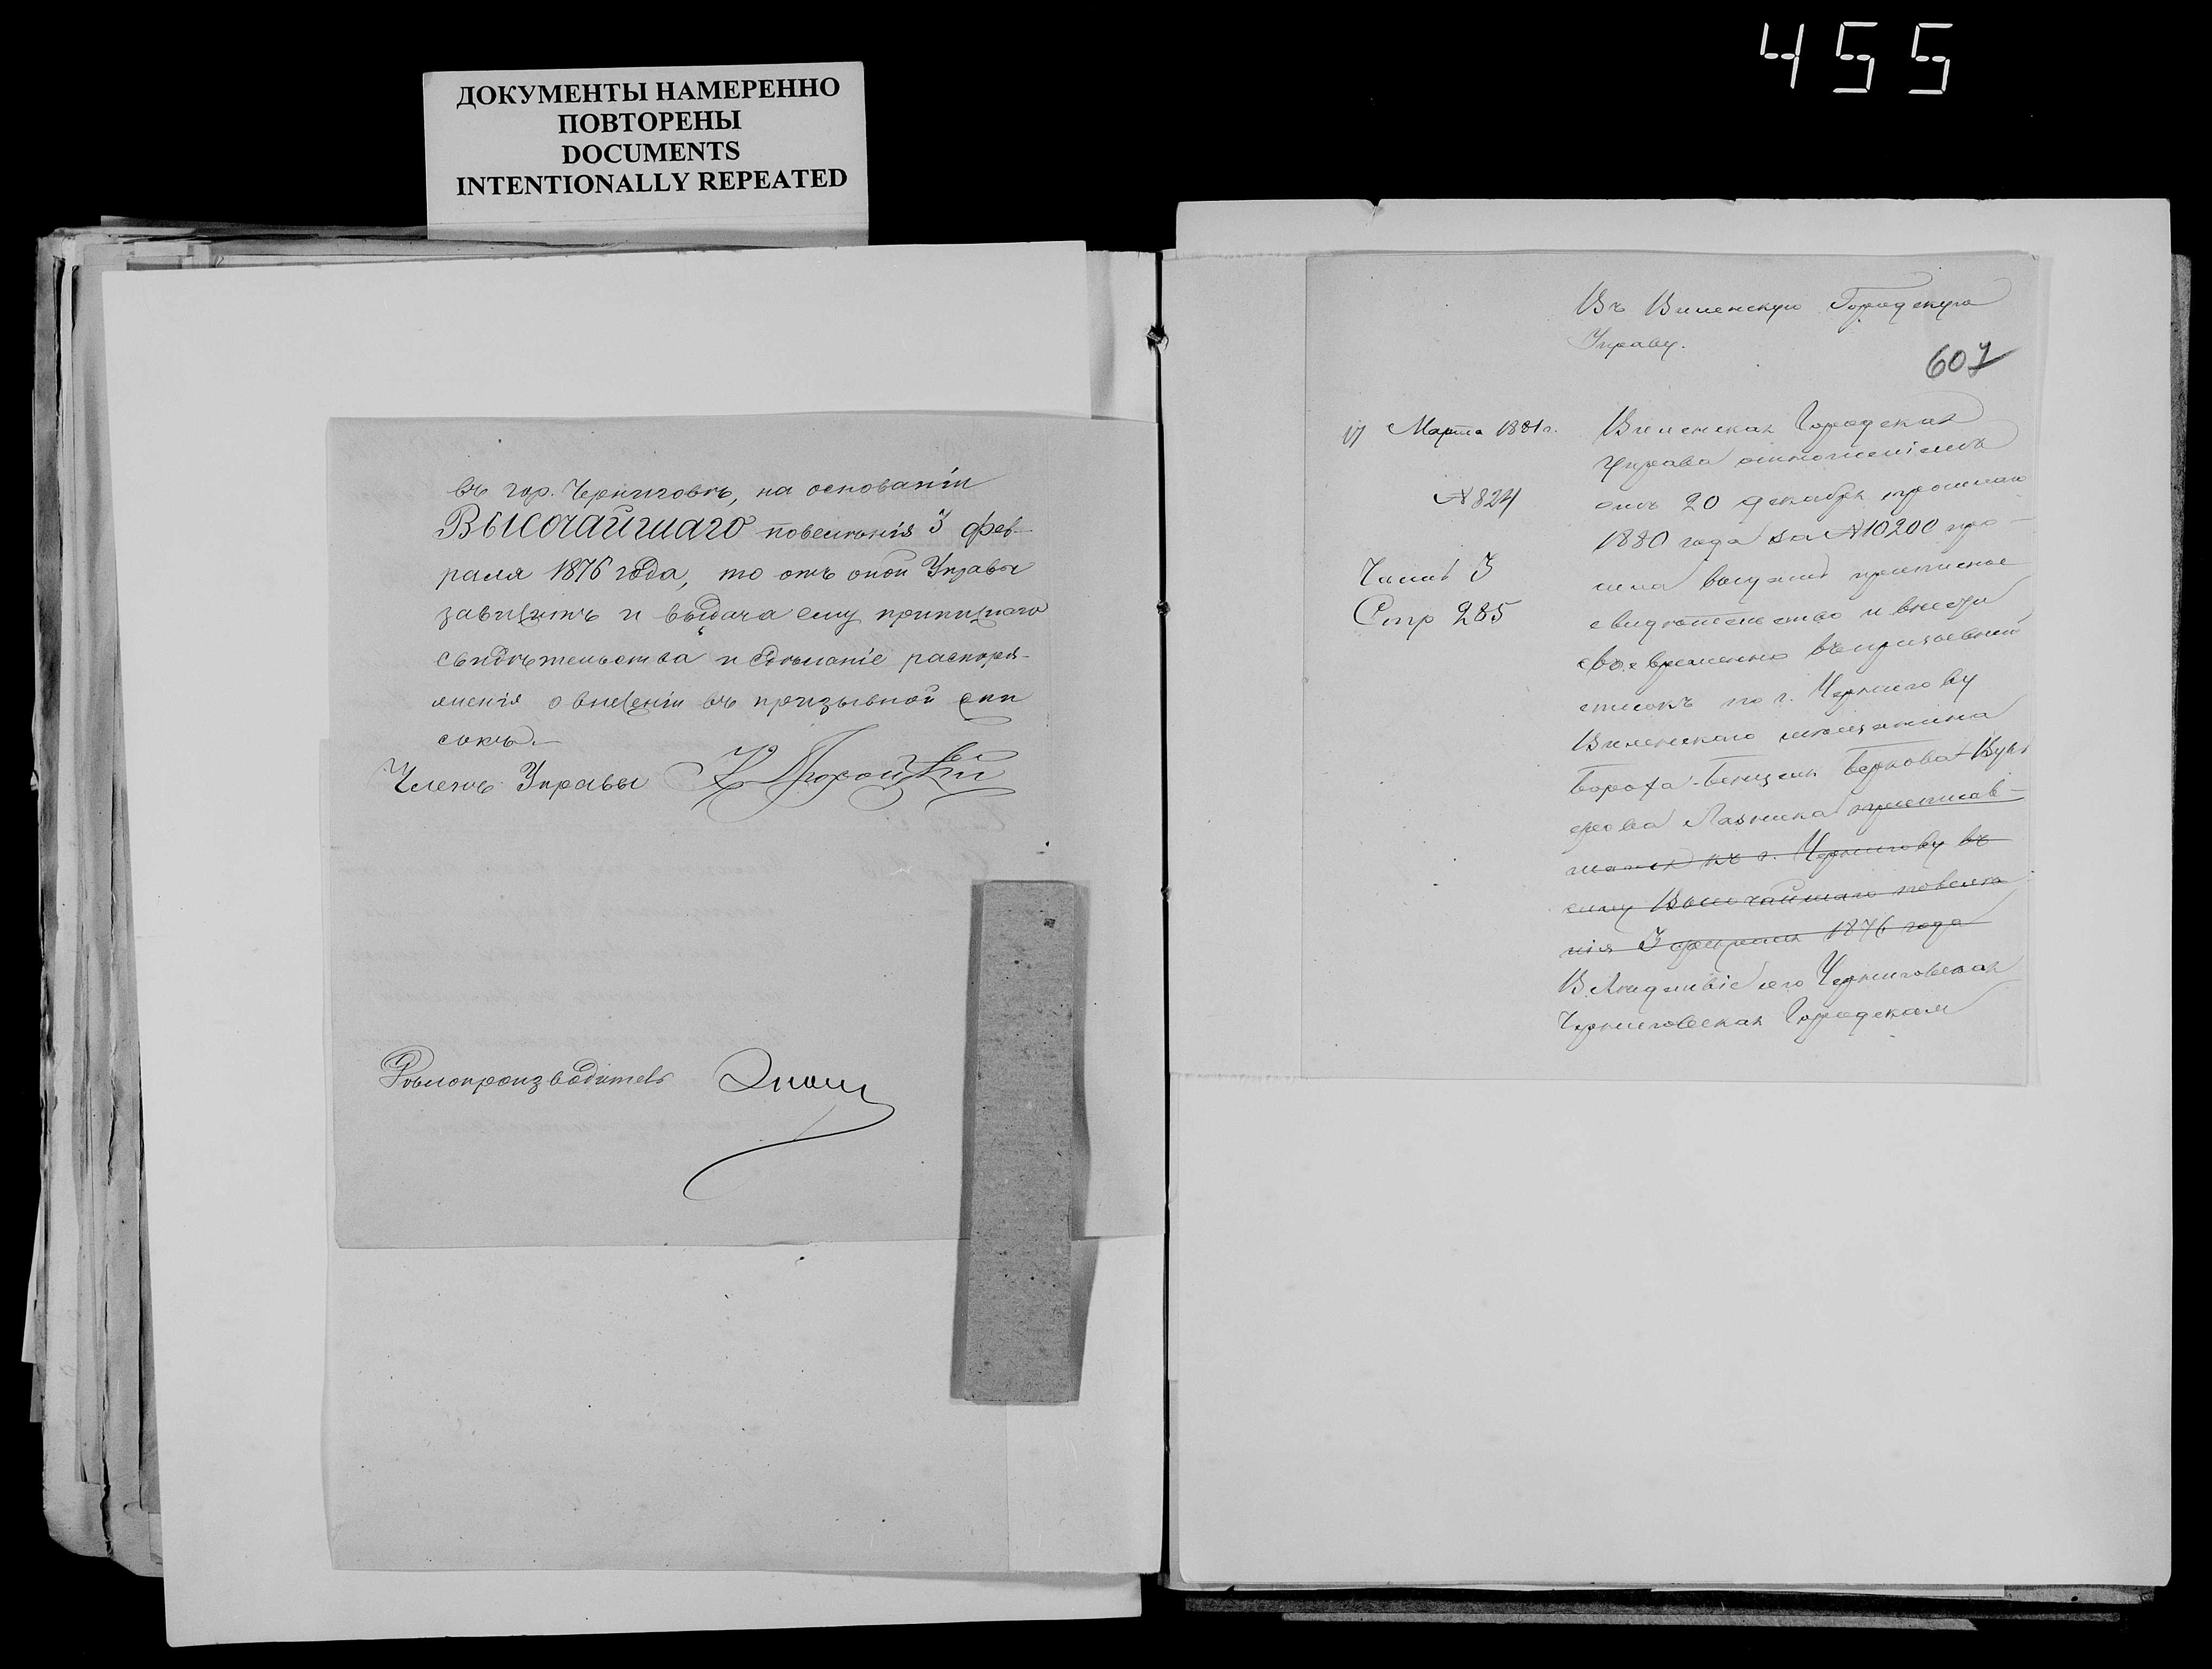 455
ДОКУМЕНТЫ НАМЕРЕННО
ПОВТОРЕНЫ
DOCUMENTS
INTENTIONALLY REPEATED
въ гор. Черниговѣ, на основаніи
Высочайшаго повелѣнія 3 фев-
раля 1876 года, то отъ оной Управы
зависитъ и выдача ему приписнаго
свидѣтельства и сдѣланіе распоря-
женія о внесеніи въ призывной спи
сокъ.
Членъ Управы
Дѣлопроизводитель
Въ Виленскую Городскую
Управу.
607
17 Марта 1881 г.
№ 824
Часть 3
Стр 285
Виленская Городская
Управа отношеніемъ
отъ 20 декабря прошлаго
1880 года за № 10200 про-
сила выдать приписное
свидѣтельство и внести
своевременно въ призывной
списокъ по г. Чернигову
Виленскаго мѣщанина
Бороха-Бенцеля Беркова
Лазника приписав-
шагося къ г. Чернигову въ
силу Высочайшаго повелѣ
нія 3 февраля 1876 года
Вслѣдствіе сего Черниговская
Черниговская Городская